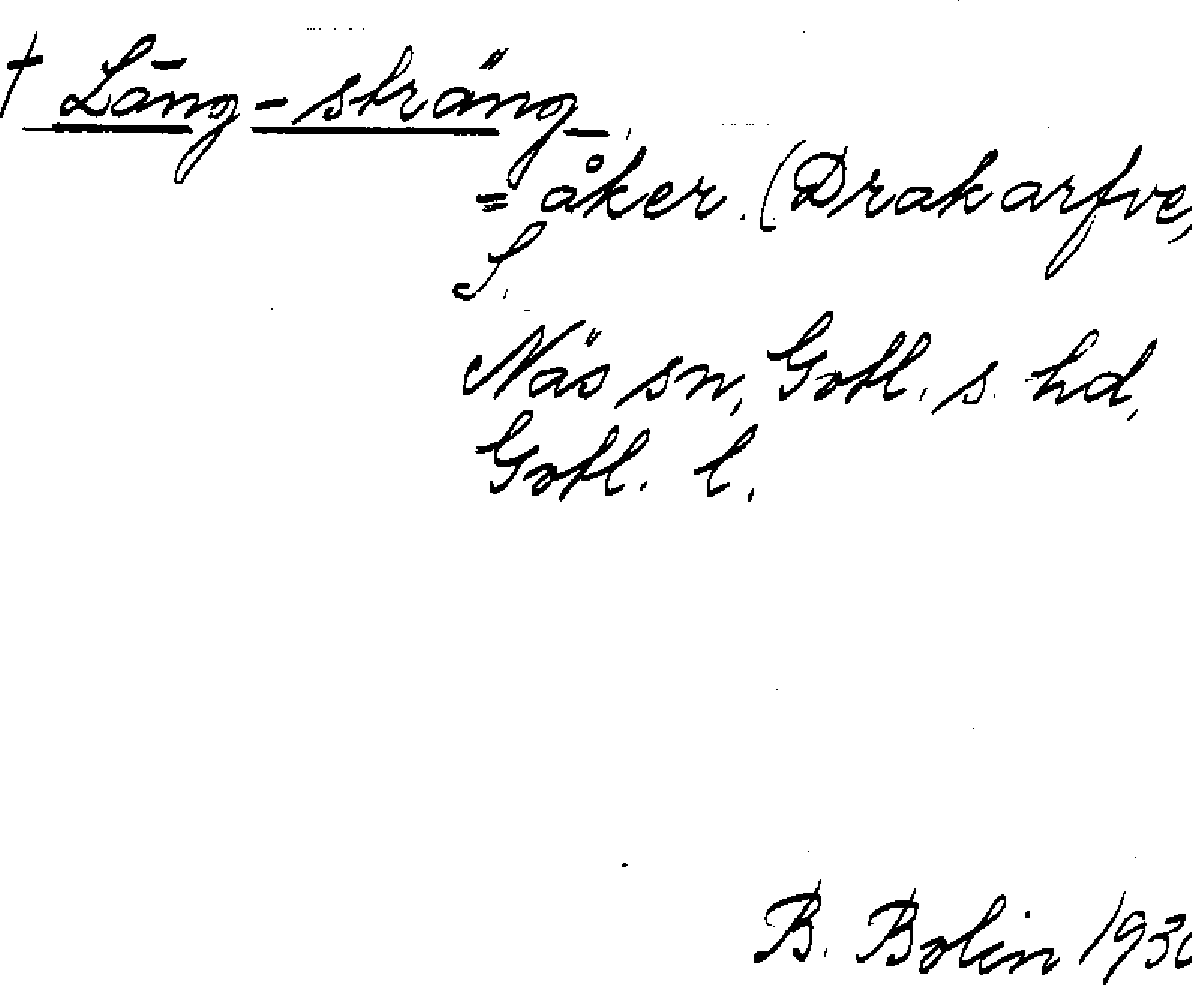 † Lāng-sträng
= åker. (Drakarfve,
S.
Näs sn, Gotl. s. hd,
Gotl. l.
B. Bolin 1930